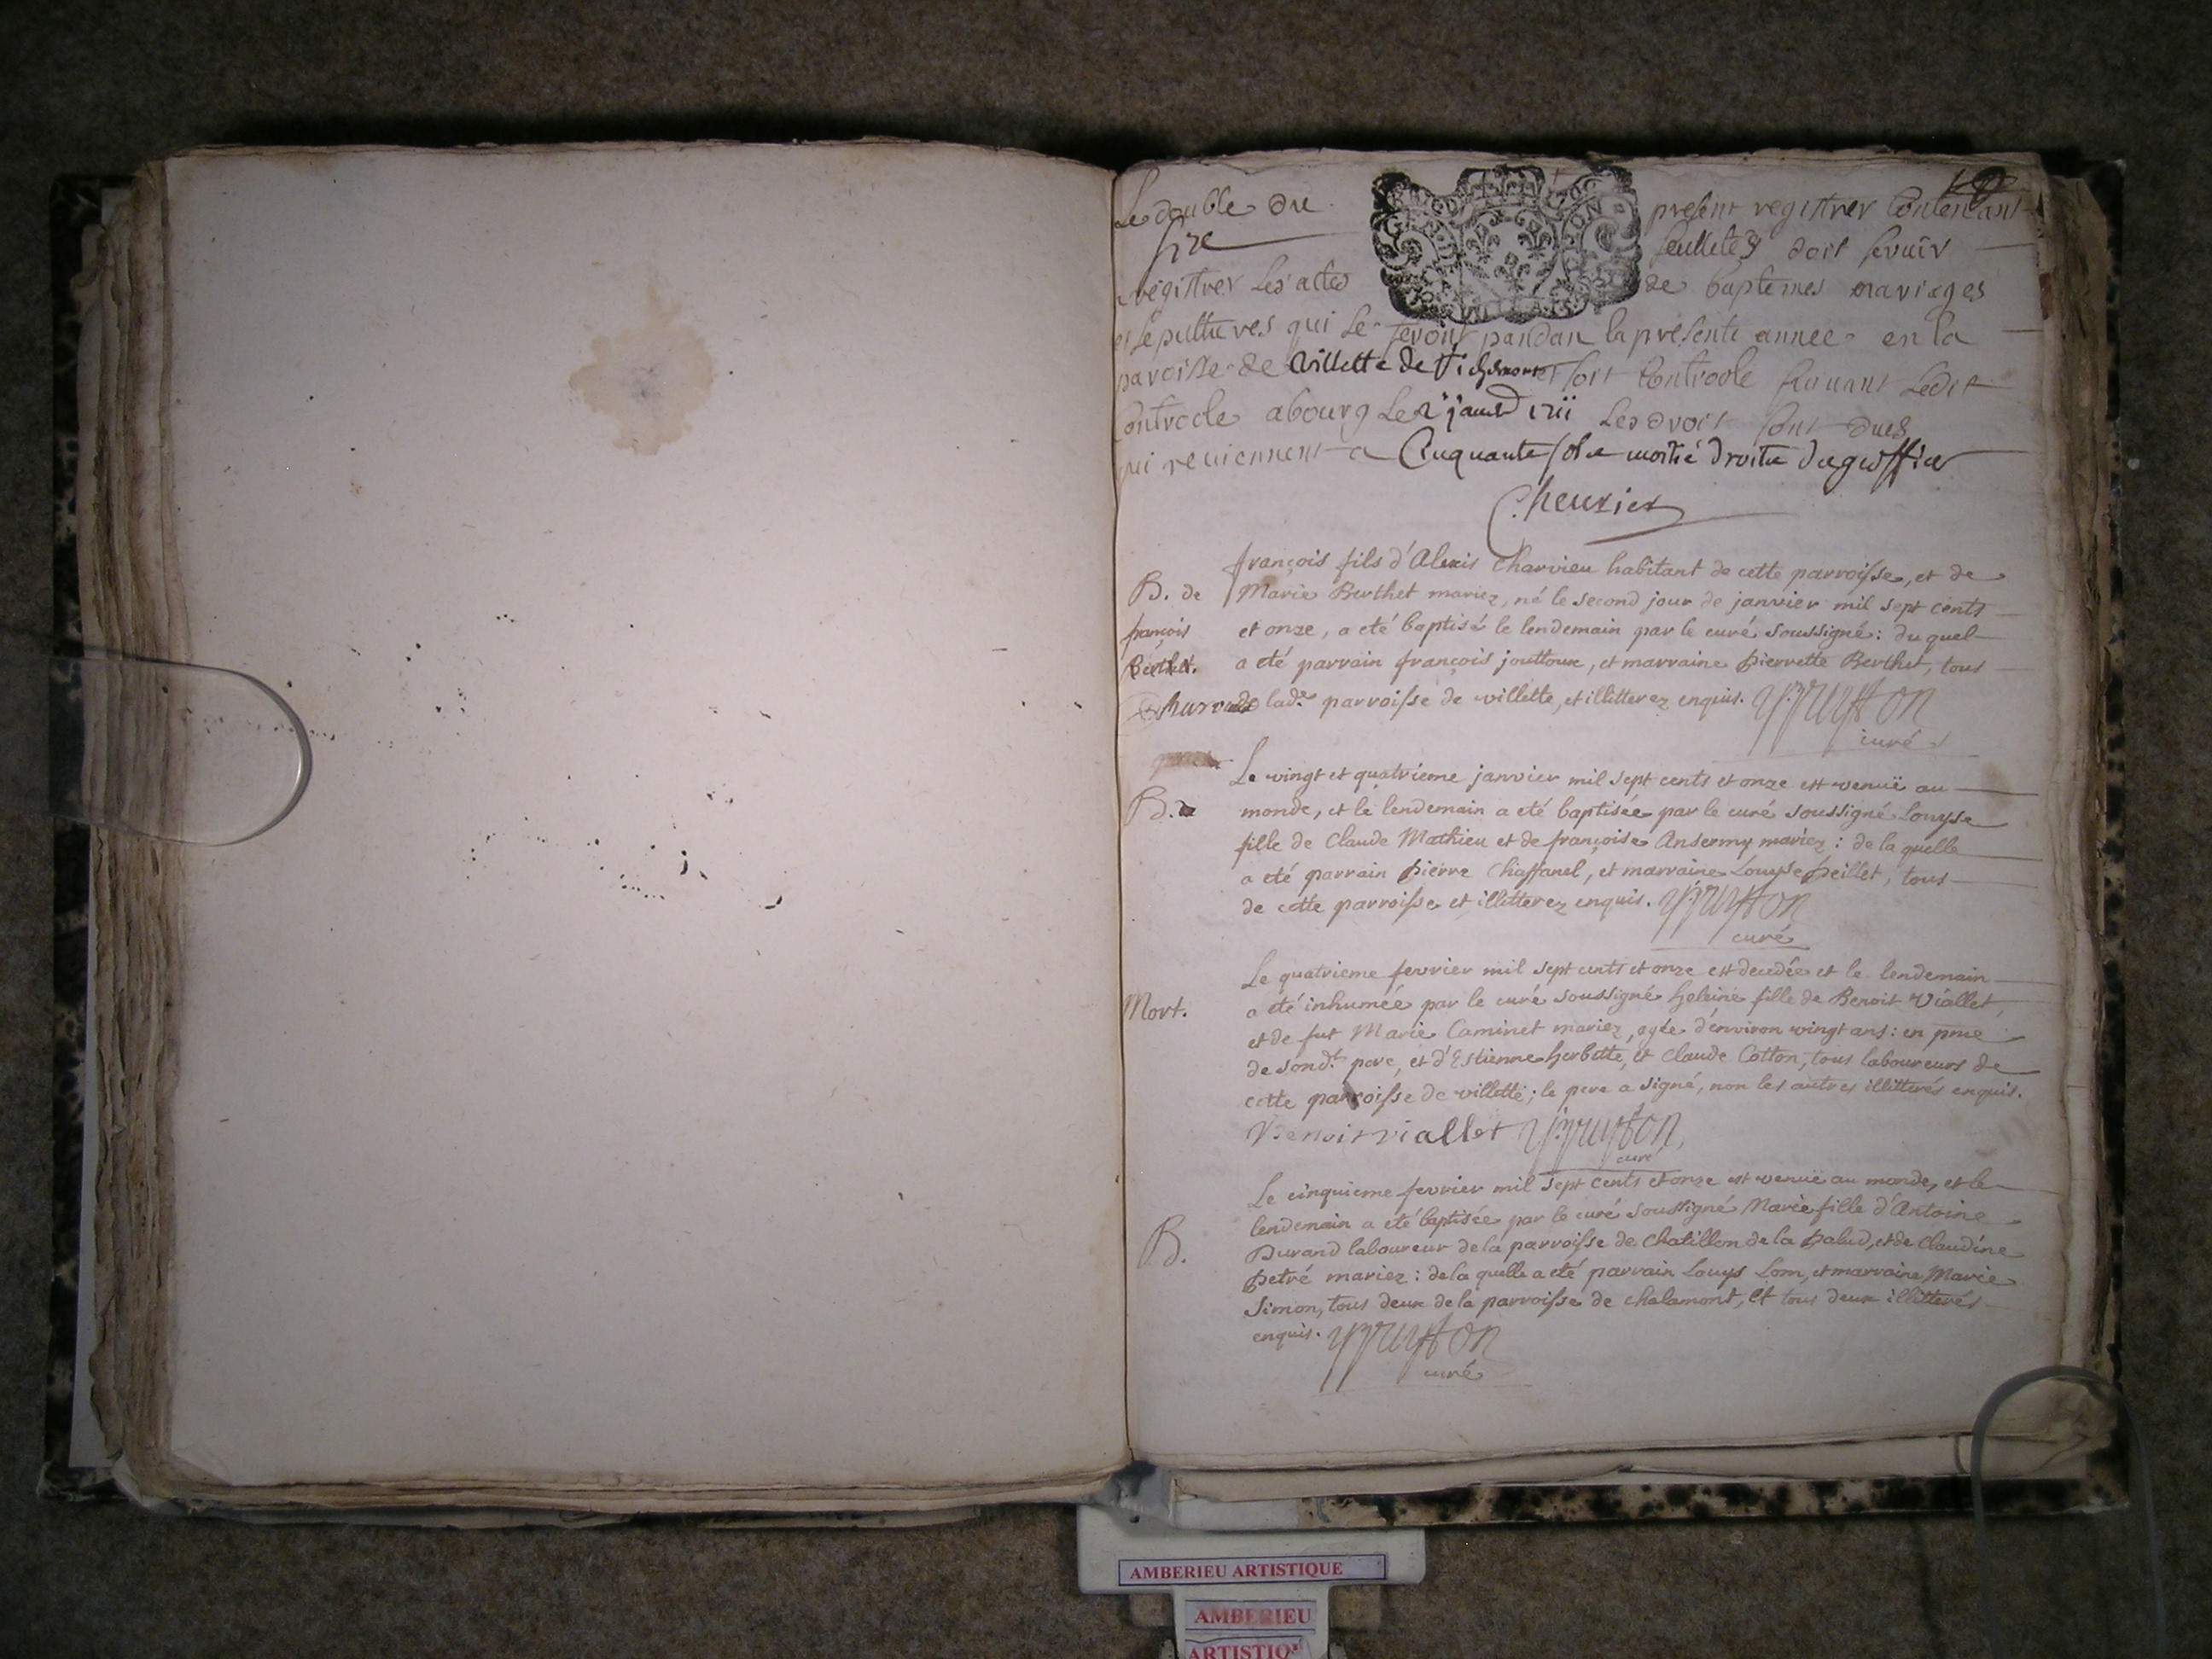 Le double du present registrer Contenant
feuillets doit seruir
registrer Les actes de baptemes mariages
et sepultures qui se feront pandan la presente annee en la
paroisse de Villette de et soit Controole suiuant Ledit
Controole a bourg Le Les droit sont dues
qui reuiennent a Cinquante sols moitié droits du greffier
Cheurier
françois fils d'Alexis Charvieu habitant de cette parroisse, et de
B. de Marie Berthet mariez, né le second jour de janvier mil sept cents
françois et onze, a eté baptisé le lendemain par le curé soussigné: du quel
Berthet. a eté parrain françois jouttoux, et marraine pierrette Berthet, tous
de lad.e parroisse de villette, et illitterez enquis.
curé
Le vingt et quatrieme janvier mil sept cents et onze est venüe au
B. monde, et le lendemain a eté baptisée par le curé soussigné Louyse
fille de Claude Mathieu et de françoise Ansermy mariez: de la quelle
a eté parrain pierre Chaffanel, et marraine Louyse peillet, tous
de cette parroisse et illitterez enquis.
curé
Le quatrieme fevrier mil sept cents et onze est decedée et le lendemain
Mort. a eté inhumée par le curé soussigné heleine fille de Benoit Viallet,
et de fut Marie Caminet mariez, agée d'environ vingt ans: en pnce
de sond.t pere, et d'Estienne herbette, et Claude Cotton, tous laboureurs de
cette parroisse de villette; le pere a signé, non les autres illitterés enquis.
Benoit viallet
curé
Le cinquieme fevrier mil sept cents et onze est venüe au monde, et le
lendemain a eté baptisée par le curé soussigné Marie fille d'Antoine
B. Durand laboureur de la parroisse de Chatillon de la palud, et de Claudine
petré mariez: de la quelle a eté parrain Louys Lom, et marraine Marie
Simon, tous deux de la parroisse de chalamont, et tous deux illitterés
enquis.
curé
AMBERIEU ARTISTIQUE
AMBERIEU